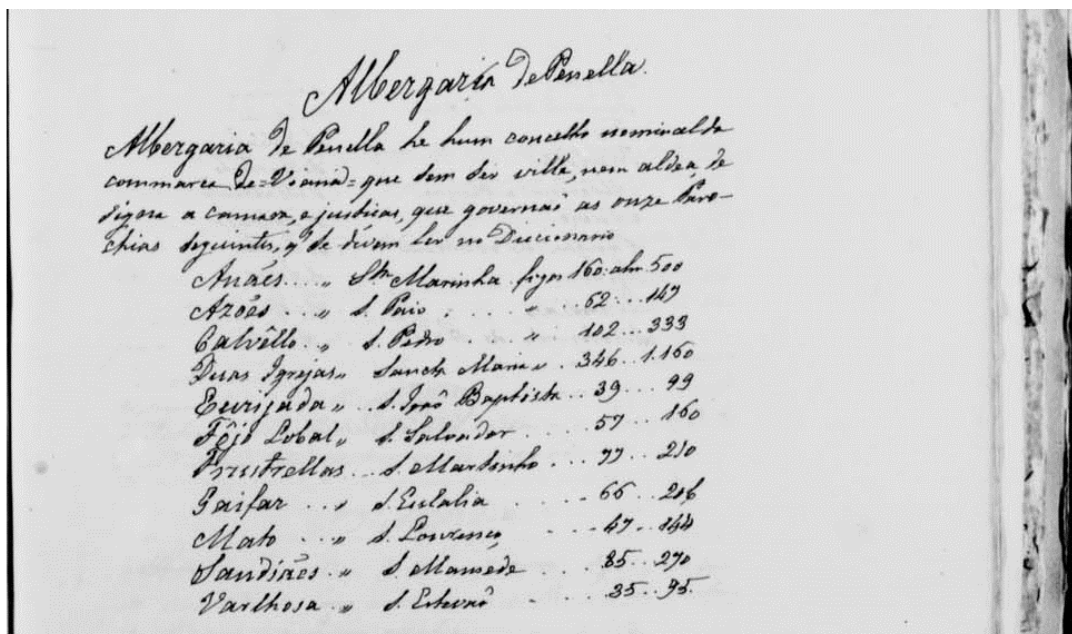 Albergaria de Penella.
Albergaria de Penella he hum concelho nominal da
commarca de=Viana=que sem ser villa, nem aldea, de
signa a camara, e justiças, que governaõ as onze Paro-
chias seguintes, q' se devem ler no Diccionario
Anães.... „ Sta Marinha fogos 160. alm. 500
Azões ... „ S. Paio . . . . „ .. 62 ... 147
Calvêllo . „ S. Pedro . . . „ .. 102 ... 333
Duas Igrejas „ Sancta Maria „ . 346 .. 1.160
„ .. S. Joaõ Baptista .. 39 ... 99
Fôjo Lobal „ S. Salvador . . . . 57 ... 160
... S. Martinho ... 77 ... 210
Gaifar ... „ S. Eulalia . . . . 66 ... 206
Mato ... „ S. Lourenço . . . 47 ... 144
Sandiães . „ S. Mamede . . . 85 ... 270
Varlhosa . „ S. Estevaõ . . . . 35 .. 95.